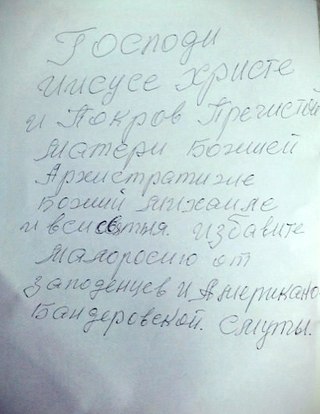 Господи
Иисусе Христе
и Покров Пречистой
Матери Божией
Архистратиже
Божий Михаиле
и вси святыя. Избавите
Малоросию от
Западенцев и Американо
Бандеровской. Смуты.